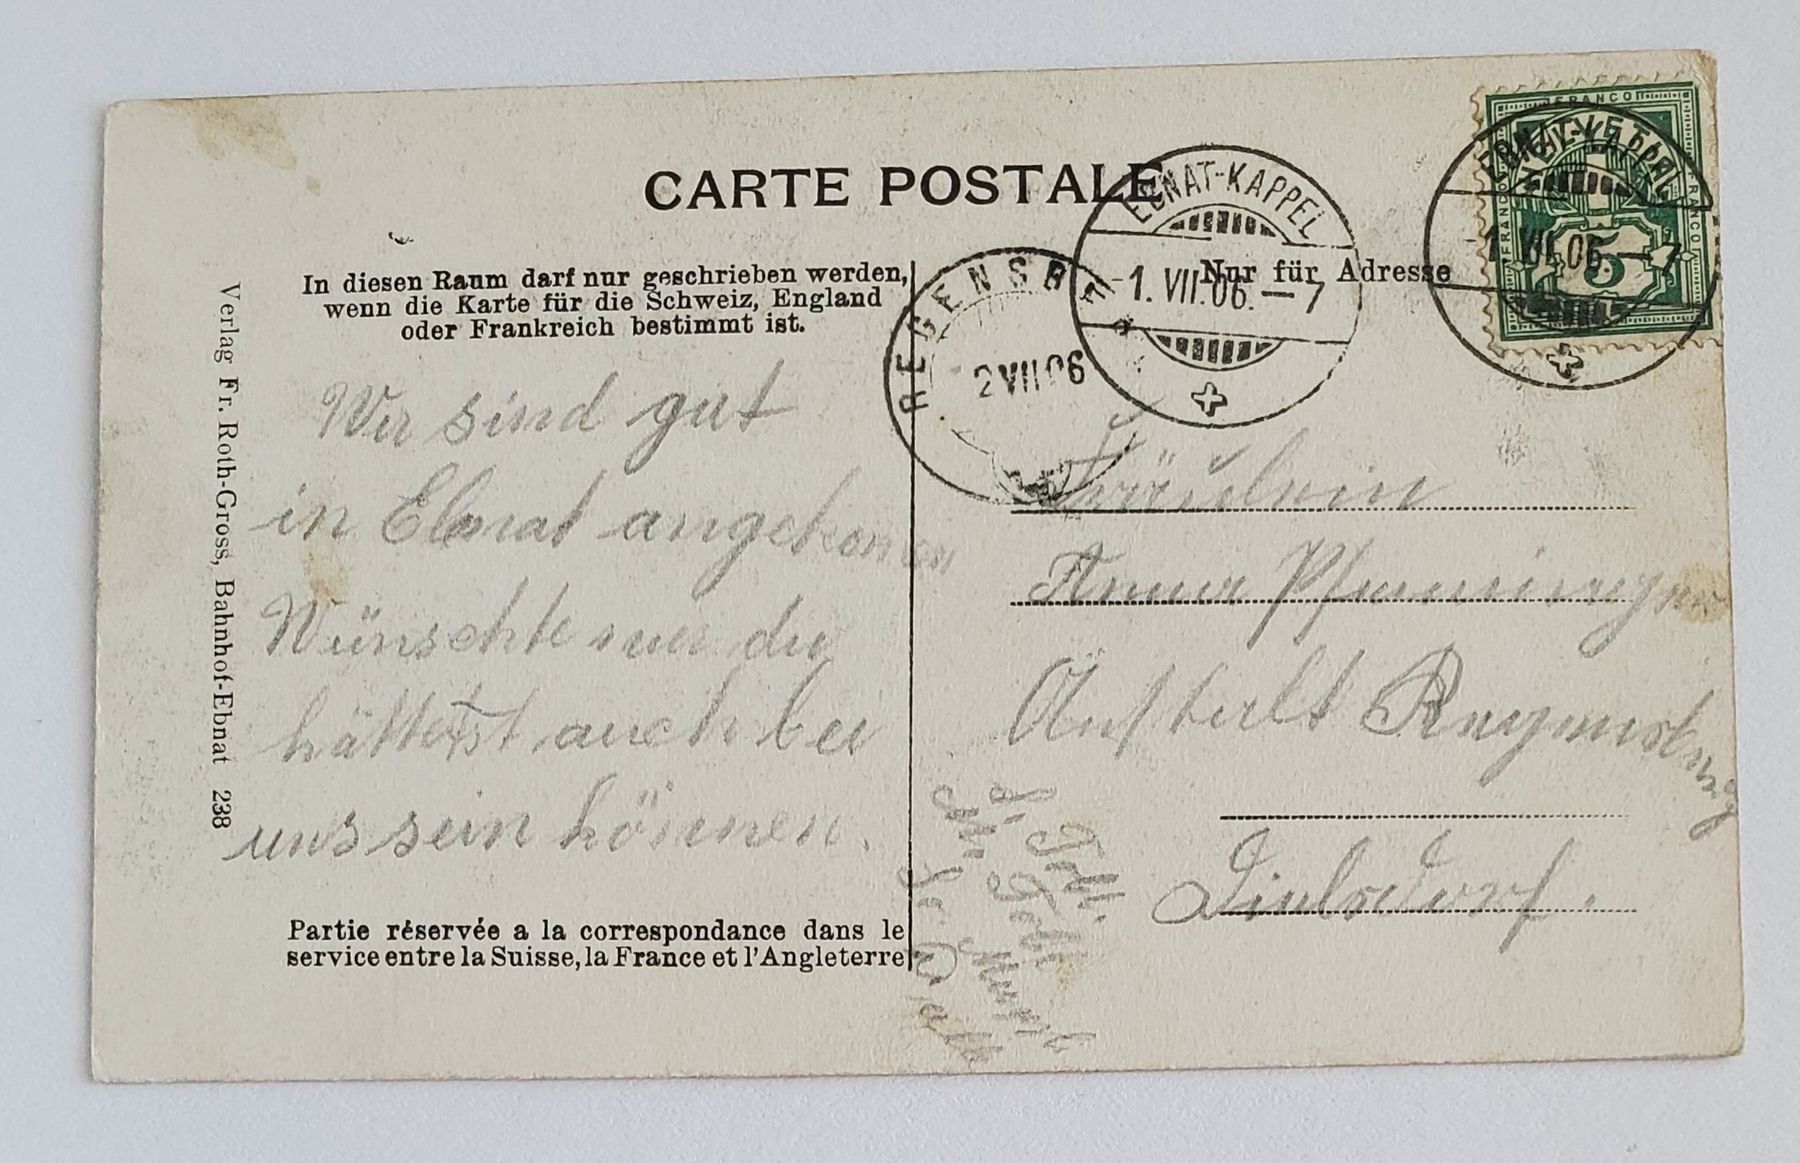 CARTE POSTALE
In diesen Raum darf nur geschrieben werden,
wenn die Karte für die Schweiz, England
oder Frankreich bestimmt ist.
Nur für Adresse
FRANCO
FRANCO
FRANCO
5
EBNAT-KAPPEL
-1.VII.06.-7
EBNAT-KAPPEL
-1.VII.06.-7
REGENSBE
2 VII 06
Wir sind gut
in Ebnat angekomen
Wünschte nur du
hättest auch bei
uns sein können.
Fräulein
Anna
Anstalt Regensberg
Dielsdorf.
Partie réservée a la correspondance dans le
service entre la Suisse, la France et l'Angleterre
Verlag Fr. Roth-Gross, Bahnhof-Ebnat 238